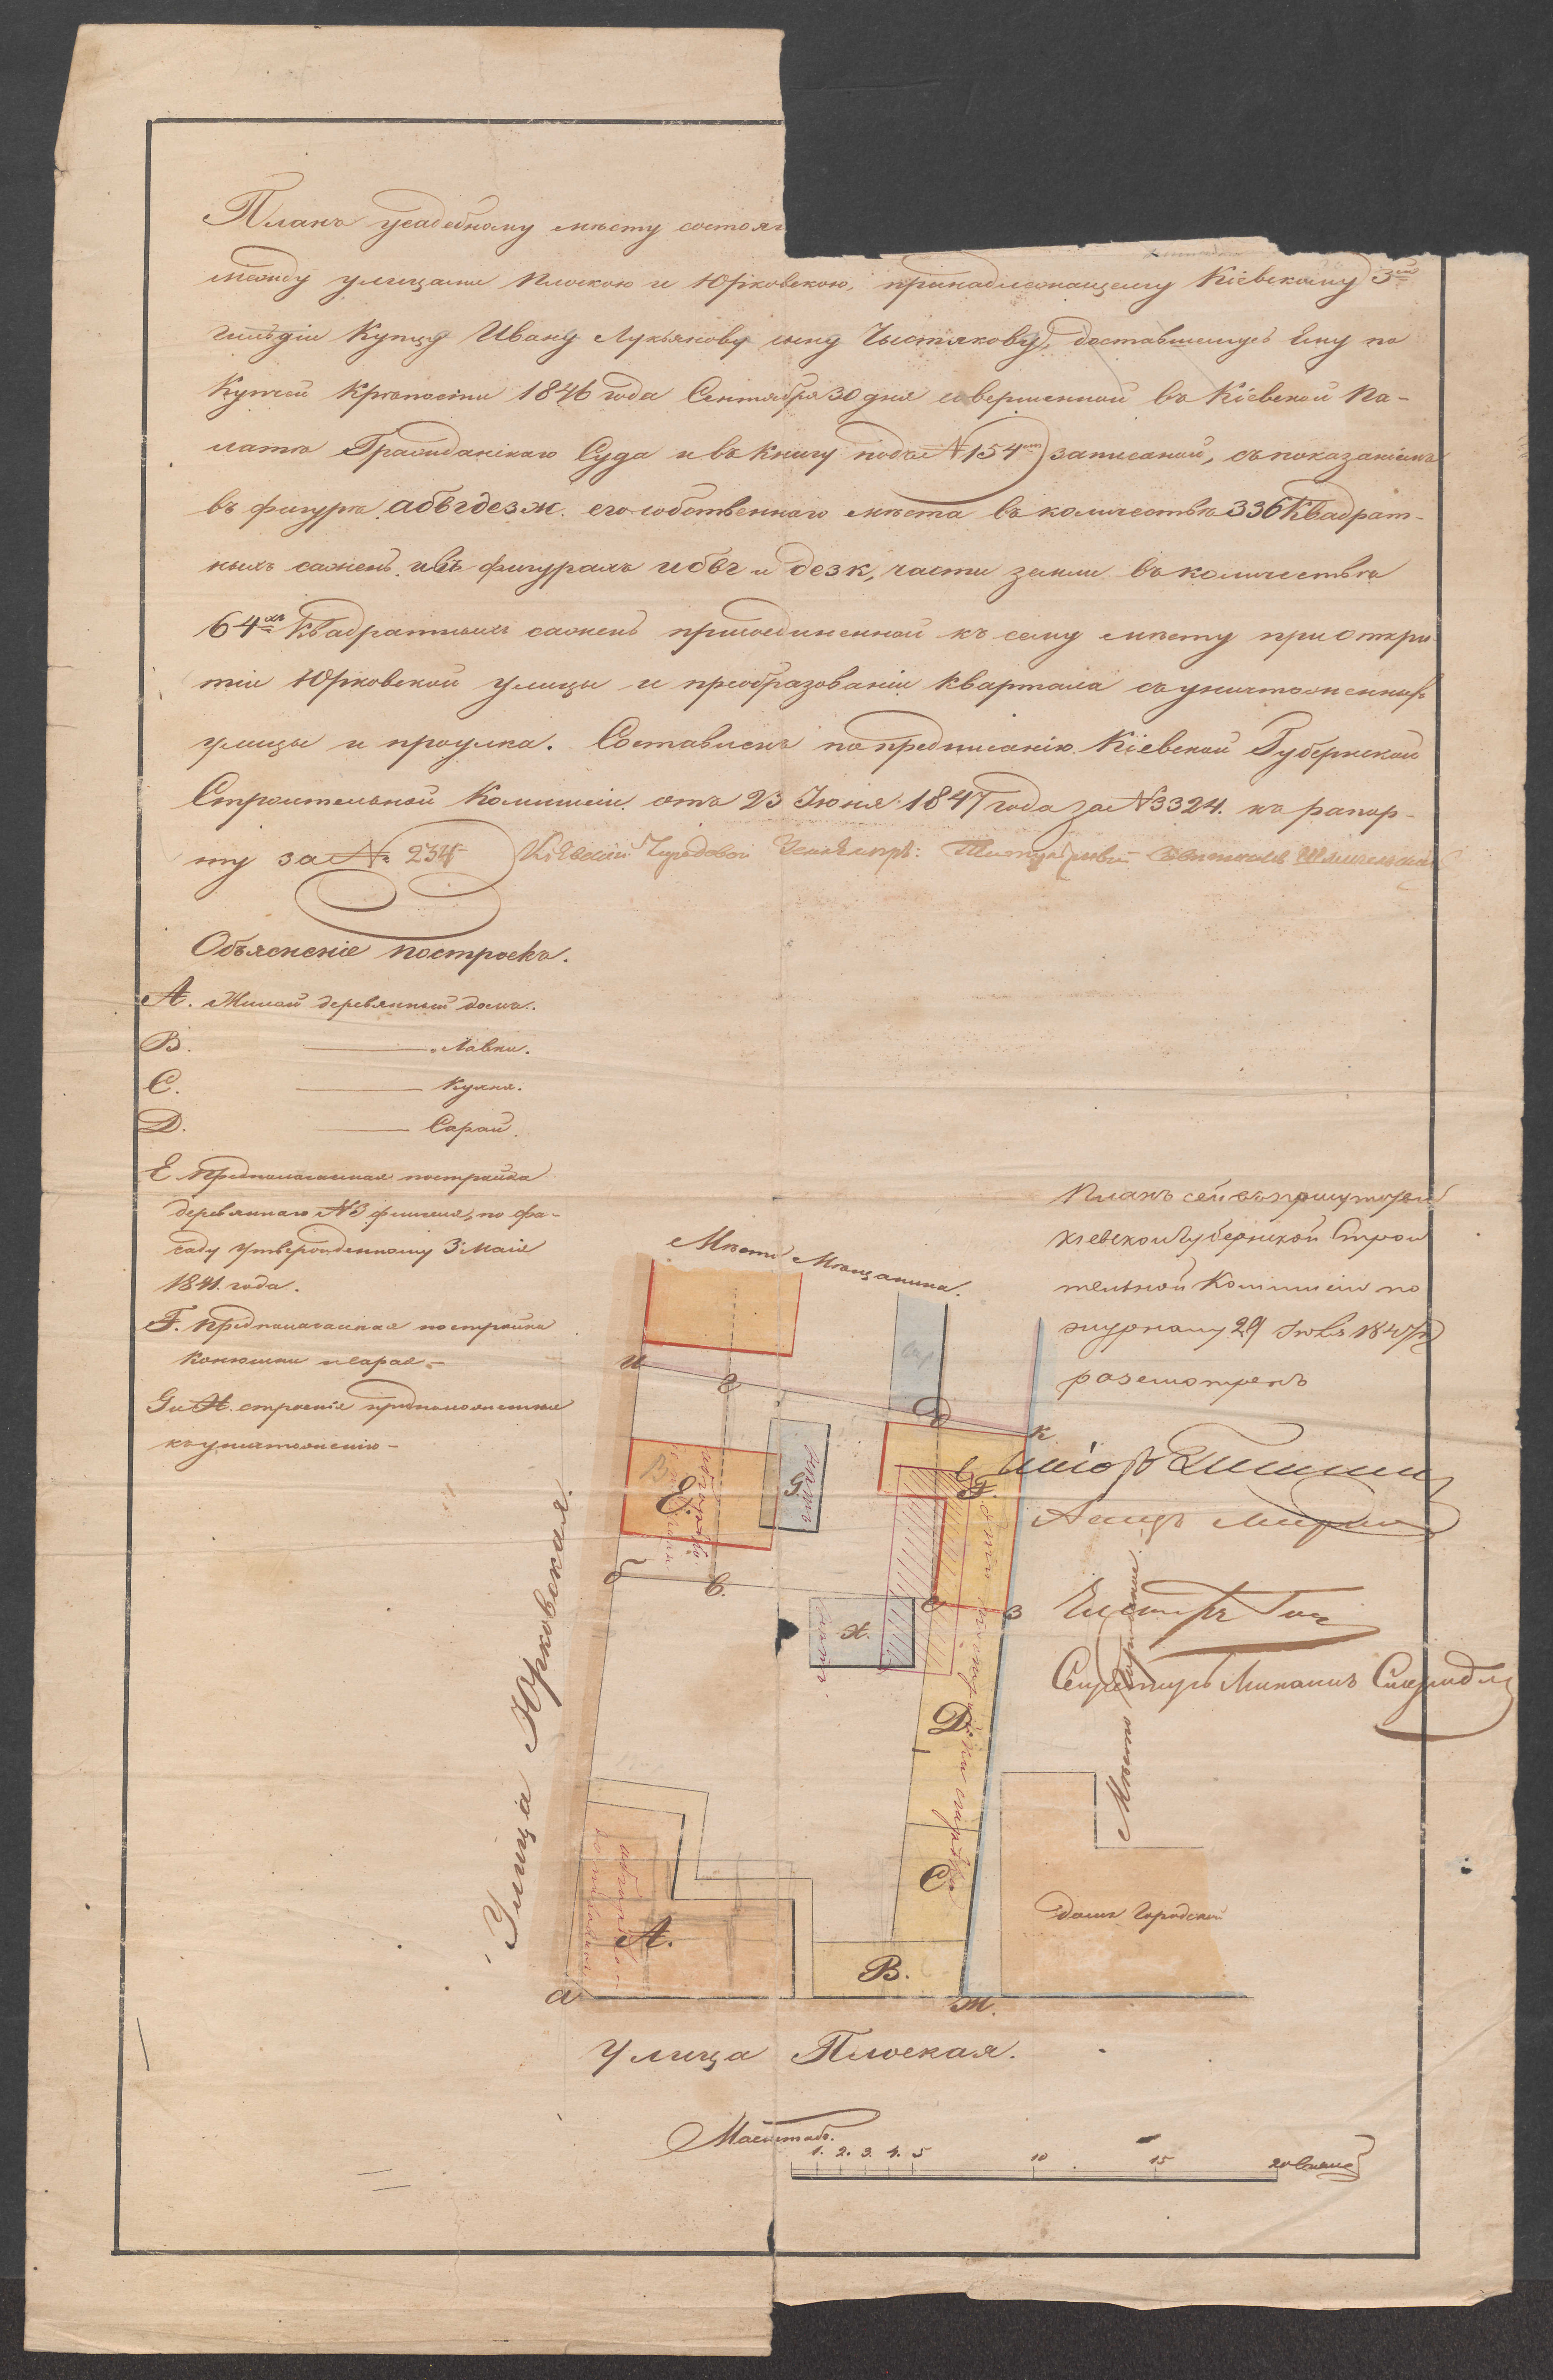 Планъ усадебному мѣсту состоя
между улицами Плоскою и Юрковскою, принадлежащему Кіевскому 3ей
гильдіи Купцу Ивану Лукьянову сыну Чыстякову, доставшемусъ Ему по
Купчей Крѣпости 1846 года Сентября 30 дня совершенной въ Кіевской Па-
латѣ Гражданскаго Суда и въ Книгу подъ № 154 записаной, съ показаніемъ
въ фигурѣ абвгдезж. его собственнаго мѣста въ количествѣ 336 Квадрат-
ныхъ сажень и въ фигурахъ ибвг и дезк, части земли въ количествѣ
64хъ Квадратныхъ сажень присоединенной къ сему мѣсту при откры-
тіи Юрковской улицы и преобразованіи квартала съ уничтоженныхъ
улицы и проулка. Составленъ по предписанію Кіевской Губернской
Строительной Коммисіи отъ 23 Іюня 1847 года за №3324. къ рапор-
ту за № 234 Кіевскій Городовой
Объясненіе построекъ.
A. Жилой деревянный домъ.
B. Лавки.
C. Кухня.
D. Сарай.
E Предполагаемая постройка
деревяннаго №3 флигеля, по фа-
саду утвержденному 3 Маія
1841. года.
F. Предполагаемая постройка
Конюшни и Сарая
G и H. строенія предположенные
къ уничтоженію
Планъ сей въ присутствіи
Кіевской Губернской Строи
тельной Коммисіи по
журналу 29 Іюля 1847
разсмотренъ
Секретарь
Мѣсто Мѣщанина.
и
г
д
к
E.
G.
F.
б
в.
е
з
H.
D.
C.
A.
B.
а
ж.
Улица Юрковская.
Мѣсто
домъ Городской
Улица Плоская.
Масштабъ.
1. 2. 3. 4. 5 10 15 20 Сажень